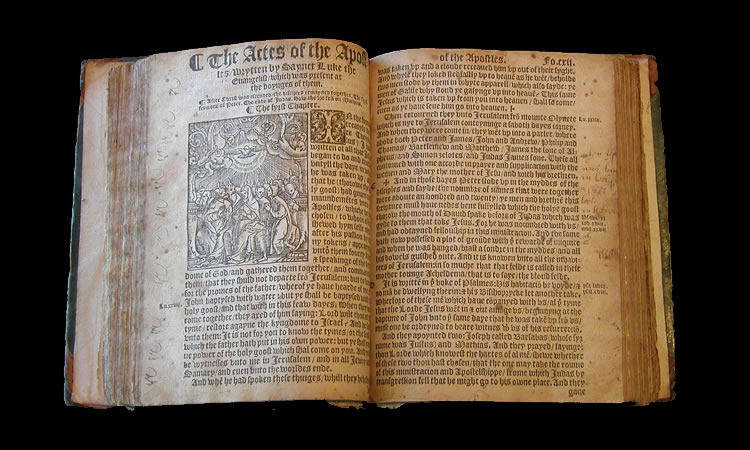 ¶ The Actes of the Apost
les / wrytten by Saynct Luke the
Evangelist / which was present at
the doynges of them.
¶ The fyrst Chapter.
IN the
written of all that
began to do and
untyll the daye
he was taken up
that he
ly goost / had
Apostles / whom
chosen / to whom
shewed hym selfe
after his passion
ny tokens / appe
unto them
speakynge of the
dome of God / and gathered them together / and
them / that they shuld not departe frō Jerusalem: but
for the promes of the father / wherof ye haue hearde of
Lu. xxiiij. John baptysed with water: but ye shall be baptysed with
holy goost / and that with in this feaw dayes. When they
come together / they axed of him saying: Lord wilt thou
tyme / restore agayne the kyngdome to Israel? And he
unto them: It is not for you to know the tymes / or the
which the father hath put in his own power: but ye shall
ue power of the holy goost which shal come on you. And
be witnesses unto me in Jerusalem / and in all Jewry
Samary / and even unto the worldes ende.
And whē he had spoken these thynges / whyll they beheld
of the Apostles. Fo. cxij.
was taken up / and a cloude receaued hym up out of their syght.
And whyle they loked stedfastly up to heauē as he wēt / beholde
two men stode by them in whyte apparell / which also sayde: ye
men of Galile why stond ye gasynge up into heauē? This same
Jesus which is taken up from you into heauen / shall so come /
euen as ye haue sene hym go into heauen.
Then returned they unto Jerusalem frō mounte Olyuete
which is nye to Jerusalem conteynynge a saboth dayes iorney.
And when they were come in / they wēt up into a parler / where
abode both Peter and James / John and Andrew / Philip and
Thomas / Bartlemew and Matthew / James the sone of Al
pheus / and Simon zelotes / and Judas James sone. These all
continued with one acorde in prayer and supplicacion with the
wemen and Mary the mother of Jesu / and with his brethren
And in those dayes Peter stode up in the myddes of the
disciples and sayde: (the noumbre of names that were together
were aboute an hondred and twenty) ye men and brethrē this
scripture must haue nedes bene fulfylled which the holye goost
thorow the mouth of Dauid spake before of Judas which was
gyde to them that toke Jesus. For he was noumbred with us /
and had obtayned fellouship in this ministracion. And the same
hath now possessed a plot of groūde with ye rewarde of iniquite
and when he was hanged / brast a sondre in the myddes / and all
his bowels gusshed out. And it is knowen unto all the inhabi
ters of Jerusalem: in so muche that that felde is called in their
mother tonge Acheldema / that is to saye / the bloud felde.
It is writtē in ye boke of Psalmes: his habitaciō be voyde / &
no mā be dwellyng therin: & his Bisshopryke let another take
Wherfore of these mē which haue cōpanyed with us / al ye tyme
that the Lorde Jesus wēt in & out amōge us / begynnyng at the
baptyme of John unto ye same daye that he was takē up frō us /
must one be ordeyned to beare witnes wt us of his resurrecciō.
And they apoynted two: Joseph called Barsabas / whose syr
name was Justus: and Mathias. And they prayed / sayinge:
thou Lorde which knowest the hartes of al mē / shewe whether
of these two thou hast chosen: that the one may take the roume
of this ministracion and Apostelshippe / from which Judas by
transgression fell that he might go to his owne place. And they
gaue